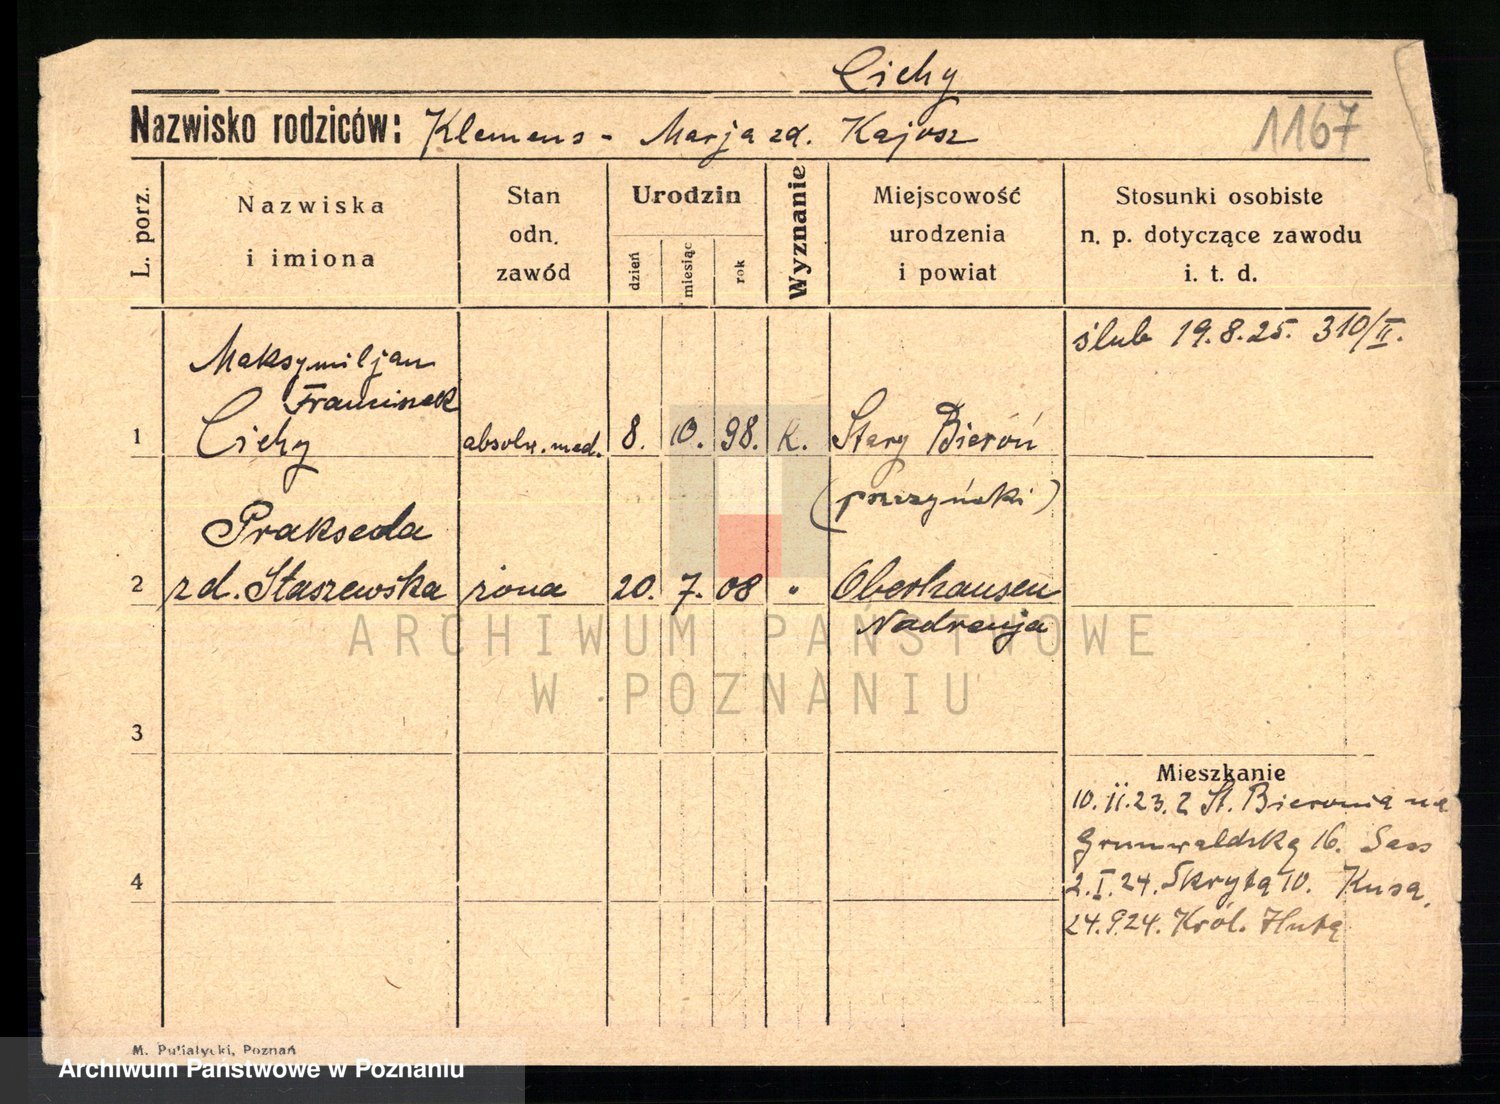 Cichy
Nazwisko rodziców: Klemens - Marja zd. Kajosz
1167
L. porz.
Nazwiska
i imiona
Stan
odn.
zawód
Urodzin
dzień
miesiąc
rok
Wyznanie
Miejscowość
urodzenia
i powiat
Stosunki osobiste
n. p. dotyczące zawodu
i. t. d.
ślub 19.8.25. 310/II.
Maksymiljan
Franciszek
1 Cichy absolw. med. 8. 10. 98. k. Stary Bieroń
(pszczyński)
Prakseda
2 zd. Staszewska żona 20. 7. 08 " Oberhausen
Nadrenja
ARCHIWUM PAŃSTWOWE
W POZNANIU
3
Mieszkanie
10.II.23. z St. Bieronia na
Grunwaldską 16.
4
2.I.24. Skrytą 10.
24.9.24. Król. Hutę
M. Putiatycki, Poznań
Archiwum Państwowe w Poznaniu